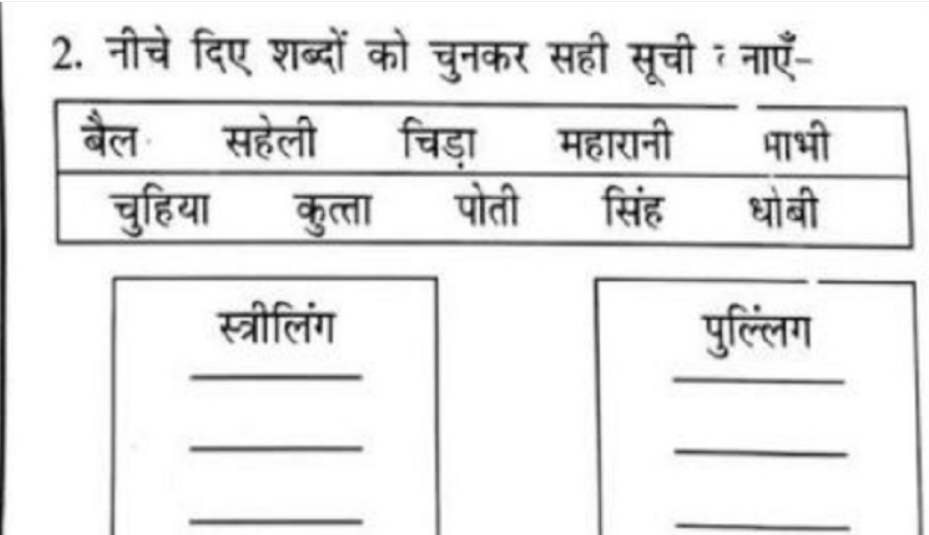 2. नीचे दिए शब्दों को चुनकर सही सूची नाएँ-
बैल सहेली चिड़ा महारानी भाभी
चुहिया कुत्ता पोती सिंह धोबी
स्त्रीलिंग पुल्लिंग